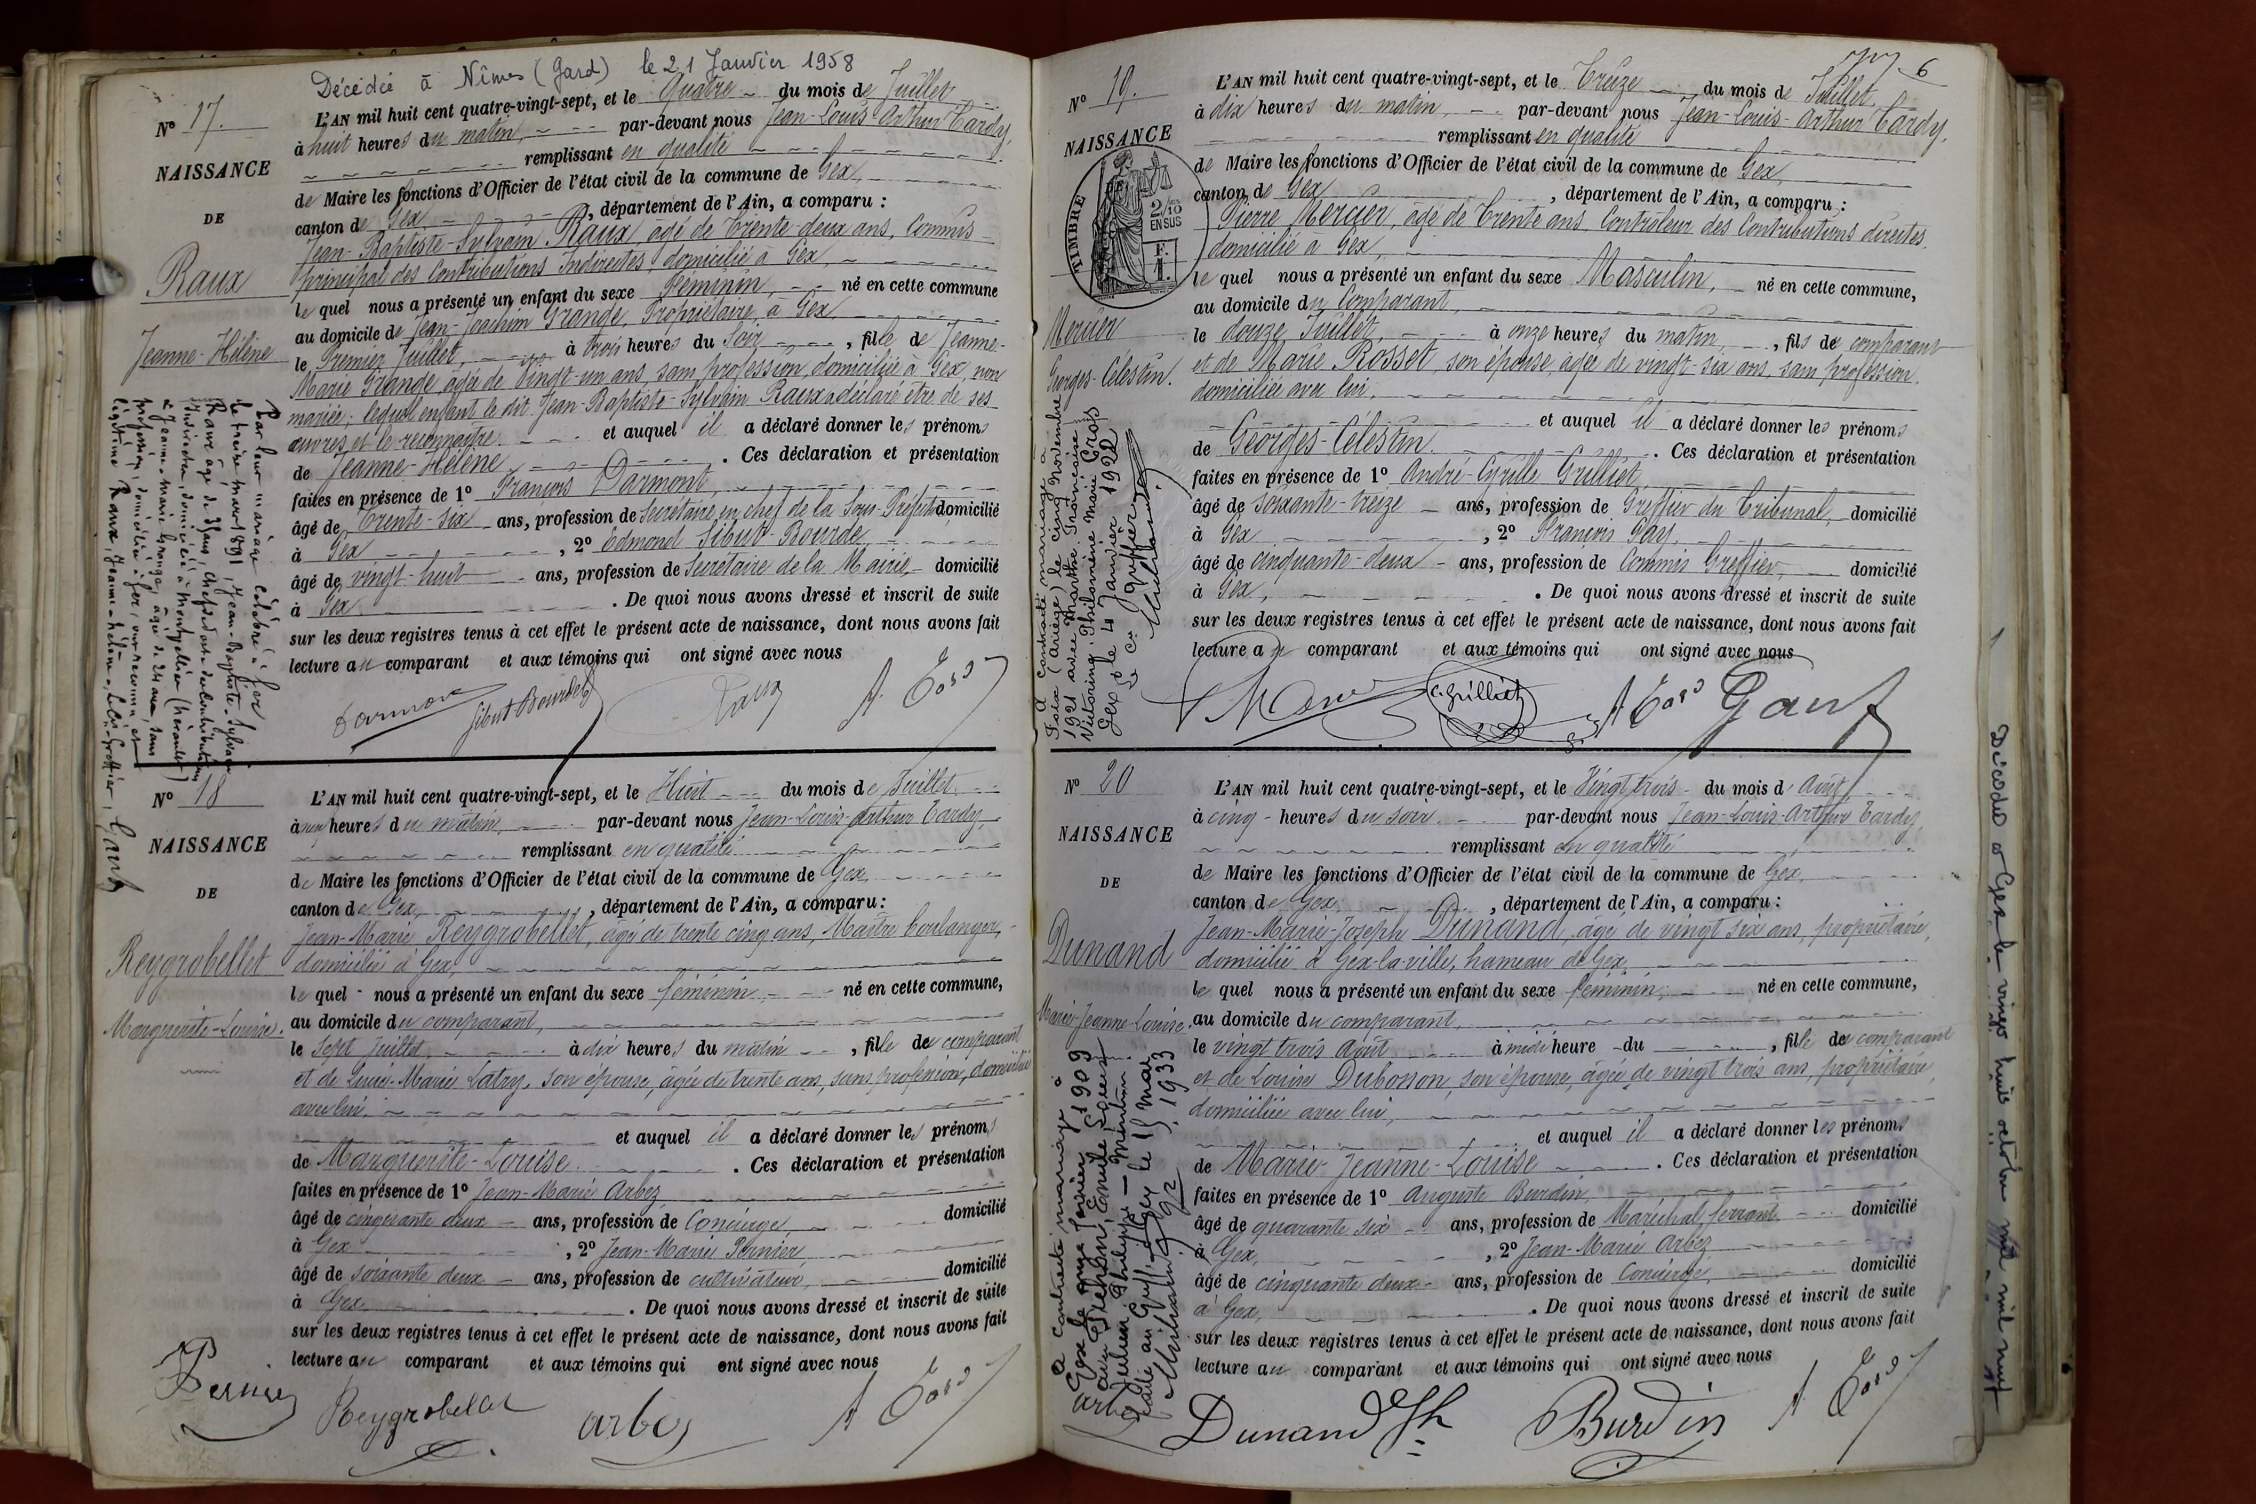 Décédée à Nîmes (Gard) le 21 Janvier 1958
N° 17.
NAISSANCE
DE
Raux
Jeanne-Hélène
L'AN mil huit cent quatre-vingt-sept, et le Quatre du mois de Juillet
à huit heures du matin, par-devant nous Jean-Louis-Arthur Tardy,
remplissant en qualité
de Maire les fonctions d'Officier de l'état civil de la commune de Gex,
canton de Gex, département de l'Ain, a comparu :
Jean-Baptiste-Sylvain Raux âgé de Trente-deux ans, Commis
principal des Contributions Indirectes, domicilié à Gex,
le quel nous a présenté un enfant du sexe Féminin, né en cette commune
au domicile de Jean-Joachim Grange, Propriétaire, à Gex
le Premier Juillet, à trois heures du Soir, fille de Jeanne-
Marie Grange, âgée de Vingt-un ans, sans profession, domiciliée à Gex, non
mariée ; lequel enfant le dit Jean-Baptiste-Sylvain Raux a déclaré être de ses
œuvres et le reconnaître. et auquel il a déclaré donner les prénoms
de Jeanne-Hélène. Ces déclaration et présentation
faites en présence de 1° François Darmont,
âgé de Trente-six ans, profession de Secrétaire en chef de la Sous-Préfecture domicilié
à Gex, 2° Edmond Sibut-Bourde,
âgé de vingt-huit ans, profession de Secrétaire de la Mairie, domicilié
à Gex. De quoi nous avons dressé et inscrit de suite
sur les deux registres tenus à cet effet le présent acte de naissance, dont nous avons fait
lecture au comparant et aux témoins qui ont signé avec nous
Par leur mariage célébré à Gex
le treize mars 1891, Jean-Baptiste-Sylvain
Raux âgé de ans, chef de de contributions
Indirectes, domicilié à Montpellier (hérault)
& Jeanne-Marie Grange, âgée de 24 ans, sans
profession, domiciliée à Gex, ont reconnu et
légitimé Raux, Jeanne-hélène.
Darmont Sibut-Bourde Raux A. Tardy
N° 18
NAISSANCE
DE
Reygrobellet
Marguerite-Louise.
L'AN mil huit cent quatre-vingt-sept, et le Huit du mois de Juillet
à neuf heures du matin, par-devant nous Jean-Louis-Arthur Tardy,
remplissant en qualité
de Maire les fonctions d'Officier de l'état civil de la commune de Gex
canton de Gex, département de l'Ain, a comparu :
Jean-Marie Reygrobellet, âgé de trente cinq ans, Maître boulanger,
domicilié à Gex,
le quel nous a présenté un enfant du sexe féminin, né en cette commune,
au domicile du comparant,
le Sept Juillet, à dix heures du matin, fille de comparant
et de Lucie-Marie Latry, son épouse, âgée de trente ans, sans profession, domiciliée
avec lui,
et auquel il a déclaré donner les prénoms
de Marguerite-Louise. Ces déclaration et présentation
faites en présence de 1° Jean-Marie Arbez
âgé de cinquante deux ans, profession de Concierge, domicilié
à Gex, 2° Jean-Marie Pernier
âgé de soixante deux ans, profession de cultivateur, domicilié
à Gex. De quoi nous avons dressé et inscrit de suite
sur les deux registres tenus à cet effet le présent acte de naissance, dont nous avons fait
lecture au comparant et aux témoins qui ont signé avec nous
Pernier Reygrobellet Arbez A Tardy
6
N° 19.
NAISSANCE
DE
TIMBRE
2/10
EN SUS
F.
1.
Mercier
Georges-Célestin.
L'AN mil huit cent quatre-vingt-sept, et le Treize du mois de Juillet,
à dix heures du matin, par-devant nous Jean-Louis-Arthur Tardy,
remplissant en qualité
de Maire les fonctions d'Officier de l'état civil de la commune de Gex,
canton de Gex, département de l'Ain, a comparu :
Pierre Mercier, âgé de Trente ans, Contrôleur des Contributions directes,
domicilié à Gex,
le quel nous a présenté un enfant du sexe Masculin, né en cette commune,
au domicile du Comparant,
le douze Juillet, à onze heures du matin, fils de comparant
et de Marie Rosset, son épouse, âgée de vingt-six ans, sans profession,
domiciliée avec lui,
et auquel il a déclaré donner les prénoms
de Georges-Célestin. Ces déclaration et présentation
faites en présence de 1° André-Cyrille Grilliet,
âgé de soixante-treize ans, profession de Greffier du Tribunal, domicilié
à Gex, 2° François Gay,
âgé de cinquante-deux ans, profession de Commis Greffier, domicilié
à Gex, De quoi nous avons dressé et inscrit de suite
sur les deux registres tenus à cet effet le présent acte de naissance, dont nous avons fait
lecture au comparant et aux témoins qui ont signé avec nous
A contracté mariage à
Foix (Ariège) le cinq Novembre
1921 avec Marthe Françoise
Victorine Philomène Marie Crois
Gex le 4 Janvier 1922
Le Cis greffier
C. Grilliet A Tardy
N° 20
NAISSANCE
DE
Dunand
Marie-Jeanne-Louise.
L'AN mil huit cent quatre-vingt-sept, et le Vingt trois du mois d'Août,
à cinq heures du soir par-devant nous Jean-Louis-Arthur Tardy,
remplissant en qualité
de Maire les fonctions d'Officier de l'état civil de la commune de Gex,
canton de Gex, département de l'Ain, a comparu :
Jean-Marie-Joseph Dunand, âgé de vingt six ans, propriétaire,
domicilié à Gex-la-ville, hameau de Gex,
le quel nous a présenté un enfant du sexe féminin, né en cette commune,
au domicile du comparant,
le vingt trois Août à midi heure du, fille de comparant
et de Louise Dubosson, son épouse, âgée de vingt trois ans, propriétaire,
domiciliée avec lui,
et auquel il a déclaré donner les prénoms
de Marie-Jeanne-Louise. Ces déclaration et présentation
faites en présence de 1° Auguste Burdin,
âgé de quarante six ans, profession de Maréchal ferrant domicilié
à Gex, 2° Jean-Marie Arbez
âgé de cinquante deux ans, profession de Concierge, domicilié
à Gex, De quoi nous avons dressé et inscrit de suite
sur les deux registres tenus à cet effet le présent acte de naissance, dont nous avons fait
lecture au comparant et aux témoins qui ont signé avec nous
A contracté mariage à
Gex le onze février 1909
avec
Julien Philippe
Gex le 15 mai 1933
Arbez Dunand Jh Burdin A Tardy
Décédée à Gex le vingt huit octobre mil neuf